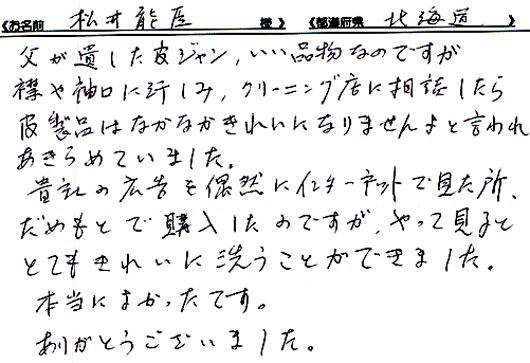 《お名前 松井能臣 様》《都道府県 北海道 》
父が遺した皮ジャン、いい品物なのですが
襟や袖口に汗じみ、クリーニング店に相談したら
皮製品はなかなかきれいになりませんよと言われ
あきらめていました。
貴社の広告を偶然にインターネットで見た所、
だめもとで購入したのですが、やって見ると
とてもきれいに洗うことができました。
本当によかったです。
ありがとうございました。